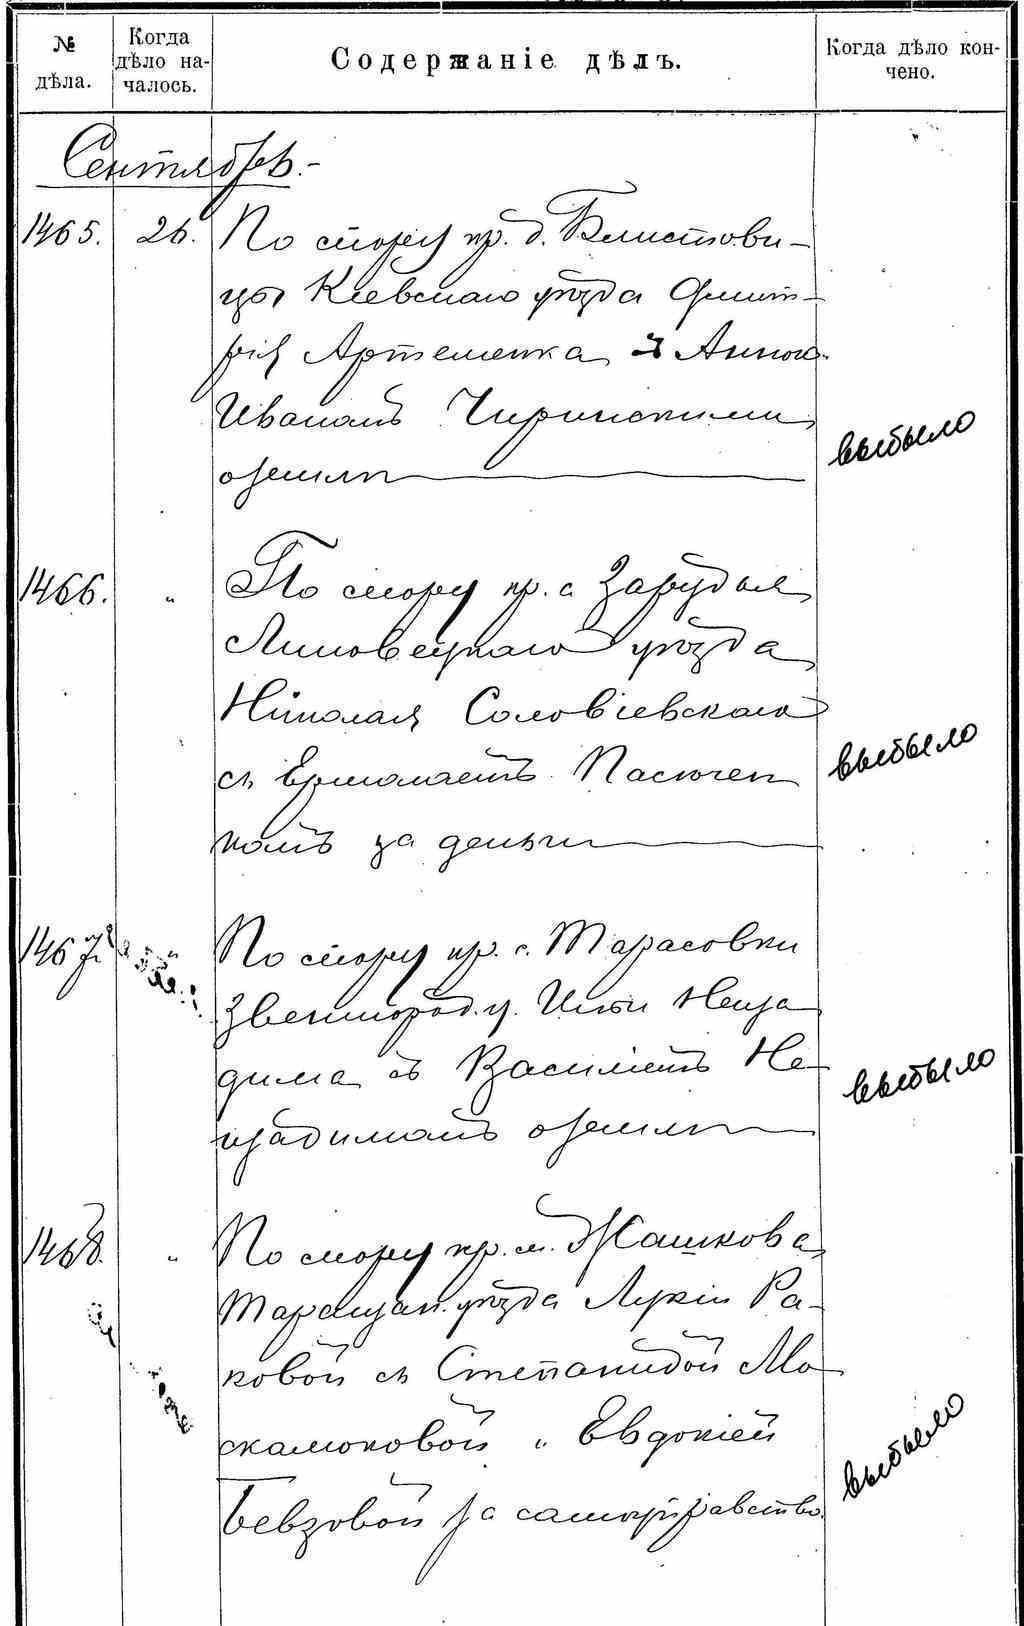 № дѣла.
Когда дѣло на-
чалось.
Содержаніе дѣлъ.
Когда дѣло кон-
чено.
Сентябрь.-
1465. 26. По спору кр. д. Блистови-
цы Кіевскаго уѣзда Дмит-
рія Артеменка съ Анною
Иваномъ Чиринскими
о землѣ
выбыло
1466. " По спору кр. с. Зарудья
Липовецкаго уѣзда
Николая Соловіевскаго
съ Ермолаемъ Пасючен
комъ за деньги
выбыло
1467. " По спору кр. с. Тарасовки
Звенигород. у. Ильи Неща
дима съ Василіемъ Не-
щадимомъ о землѣ
выбыло
1468. " По спору кр. м. Жашкова
Таращан. уѣзда Лукіи Ра-
ковой съ Степанидой Мо
скалюковой и Евдокіей
Бевзовой за самоуправство.
выбыло